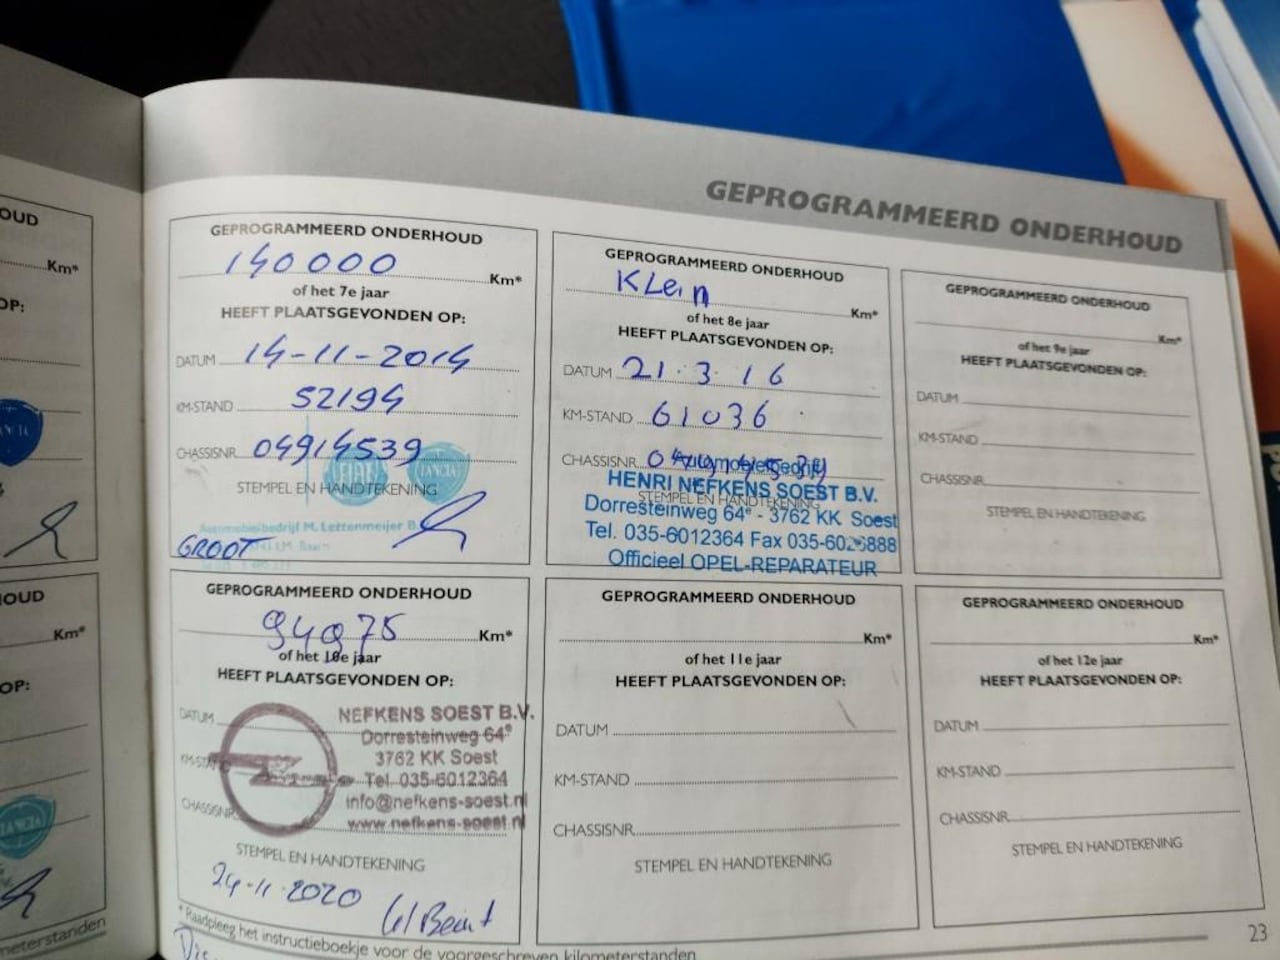 OUD
Km*
OP:
LANCIA
OUD
Km*
OP:
LANCIA
meterstanden
GEPROGRAMMEERD ONDERHOUD
GEPROGRAMMEERD ONDERHOUD
140000 Km*
of het 7e jaar
HEEFT PLAATSGEVONDEN OP:
DATUM 14-11-2014
KM-STAND 52194
CHASSISNR. 04914539
FIAT LANCIA
STEMPEL EN HANDTEKENING
Automobielbedrijf M. Lettenmeijer B.
GROOT
Baarn
GEPROGRAMMEERD ONDERHOUD
KLein Km*
of het 8e jaar
HEEFT PLAATSGEVONDEN OP:
DATUM 21.3.16
KM-STAND 61036
CHASSISNR. 04914539
Automobielbedrijf
STEMPEL EN HANDTEKENING
HENRI NEFKENS SOEST B.V.
Dorresteinweg 64e - 3762 KK Soest
Tel. 035-6012364 Fax 035-6025888
Officieel OPEL-REPARATEUR
GEPROGRAMMEERD ONDERHOUD
Km*
of het 9e jaar
HEEFT PLAATSGEVONDEN OP:
DATUM
KM-STAND
CHASSISNR.
STEMPEL EN HANDTEKENING
GEPROGRAMMEERD ONDERHOUD
94975 Km*
of het 10e jaar
HEEFT PLAATSGEVONDEN OP:
DATUM
KM-STAND
CHASSISNR.
NEFKENS SOEST B.V.
Dorresteinweg 64e
3762 KK Soest
Tel. 035-6012364
info@nefkens-soest.nl
www.nefkens-soest.nl
STEMPEL EN HANDTEKENING
24-11-2020
GEPROGRAMMEERD ONDERHOUD
Km*
of het 11e jaar
HEEFT PLAATSGEVONDEN OP:
DATUM
KM-STAND
CHASSISNR.
STEMPEL EN HANDTEKENING
GEPROGRAMMEERD ONDERHOUD
Km*
of het 12e jaar
HEEFT PLAATSGEVONDEN OP:
DATUM
KM-STAND
CHASSISNR.
STEMPEL EN HANDTEKENING
* Raadpleeg het instructieboekje voor de voorgeschreven kilometerstanden
23